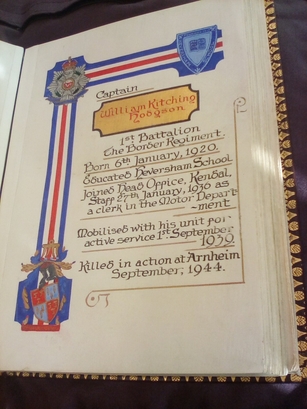 Captain
William Kitching
Hodgson
1st Battalion
The Border Regiment.
Born 6th January, 1920.
Educated Heversham School
Joined Head Office, Kendal,
Staff 27th January, 1936 as
a clerk in the Motor Depart-
-ment
Mobilised with his unit for
active service 1st September
1939.
Killed in action at Arnheim
September, 1944.